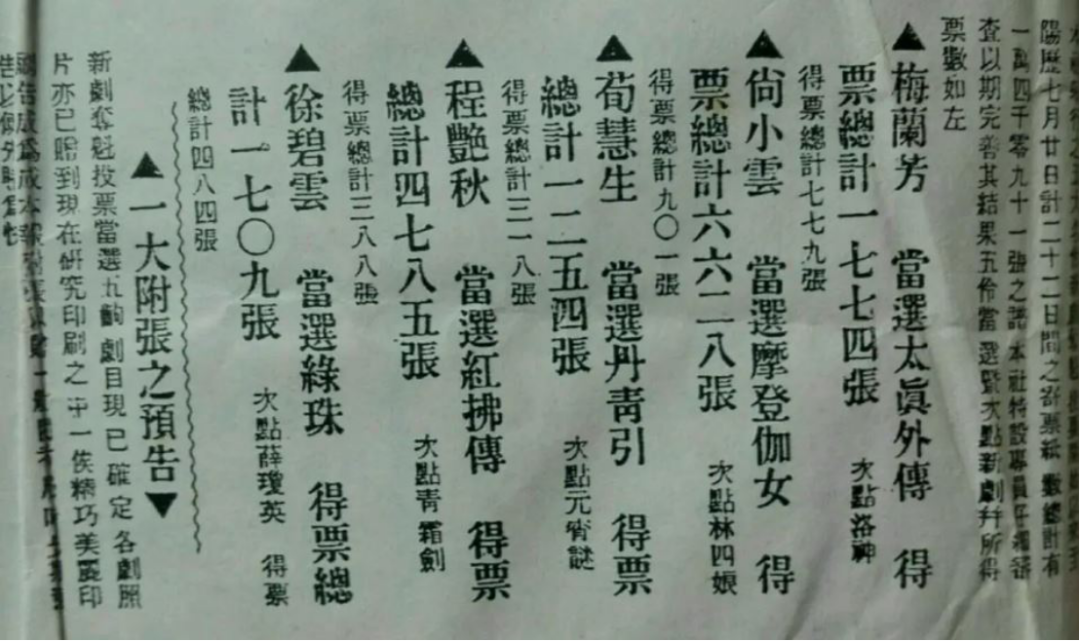 陽歷七月廿日計二十二日間之
一萬四千零九十一張之譜本社特設專員
查以期完善其結果五伶當選曁次點新劇幷所得
票數如左
▲梅蘭芳 當選太眞外傳 得
票總計一七七四張 次點洛神
得票總計七七九張
▲尙小雲 當選摩登伽女 得
票總計六六二八張 次點林四娘
得票總計九〇一張
▲荀慧生 當選丹靑引 得票
總計一二五四張 次點元宵謎
得票總計三一八張
▲程艷秋 當選紅拂傳 得票
總計四七八五張 次點靑霜劍
得票總計三八八張
▲徐碧雲 當選綠珠 得票總
計一七〇九張 次點薛瓊英 得票
總計四八四張
▲一大附張之預告▼
新劇奪魁投票當選五齣劇目現已確定各劇照
片亦已贈到現在硏究印刷之中一俟精巧美麗印